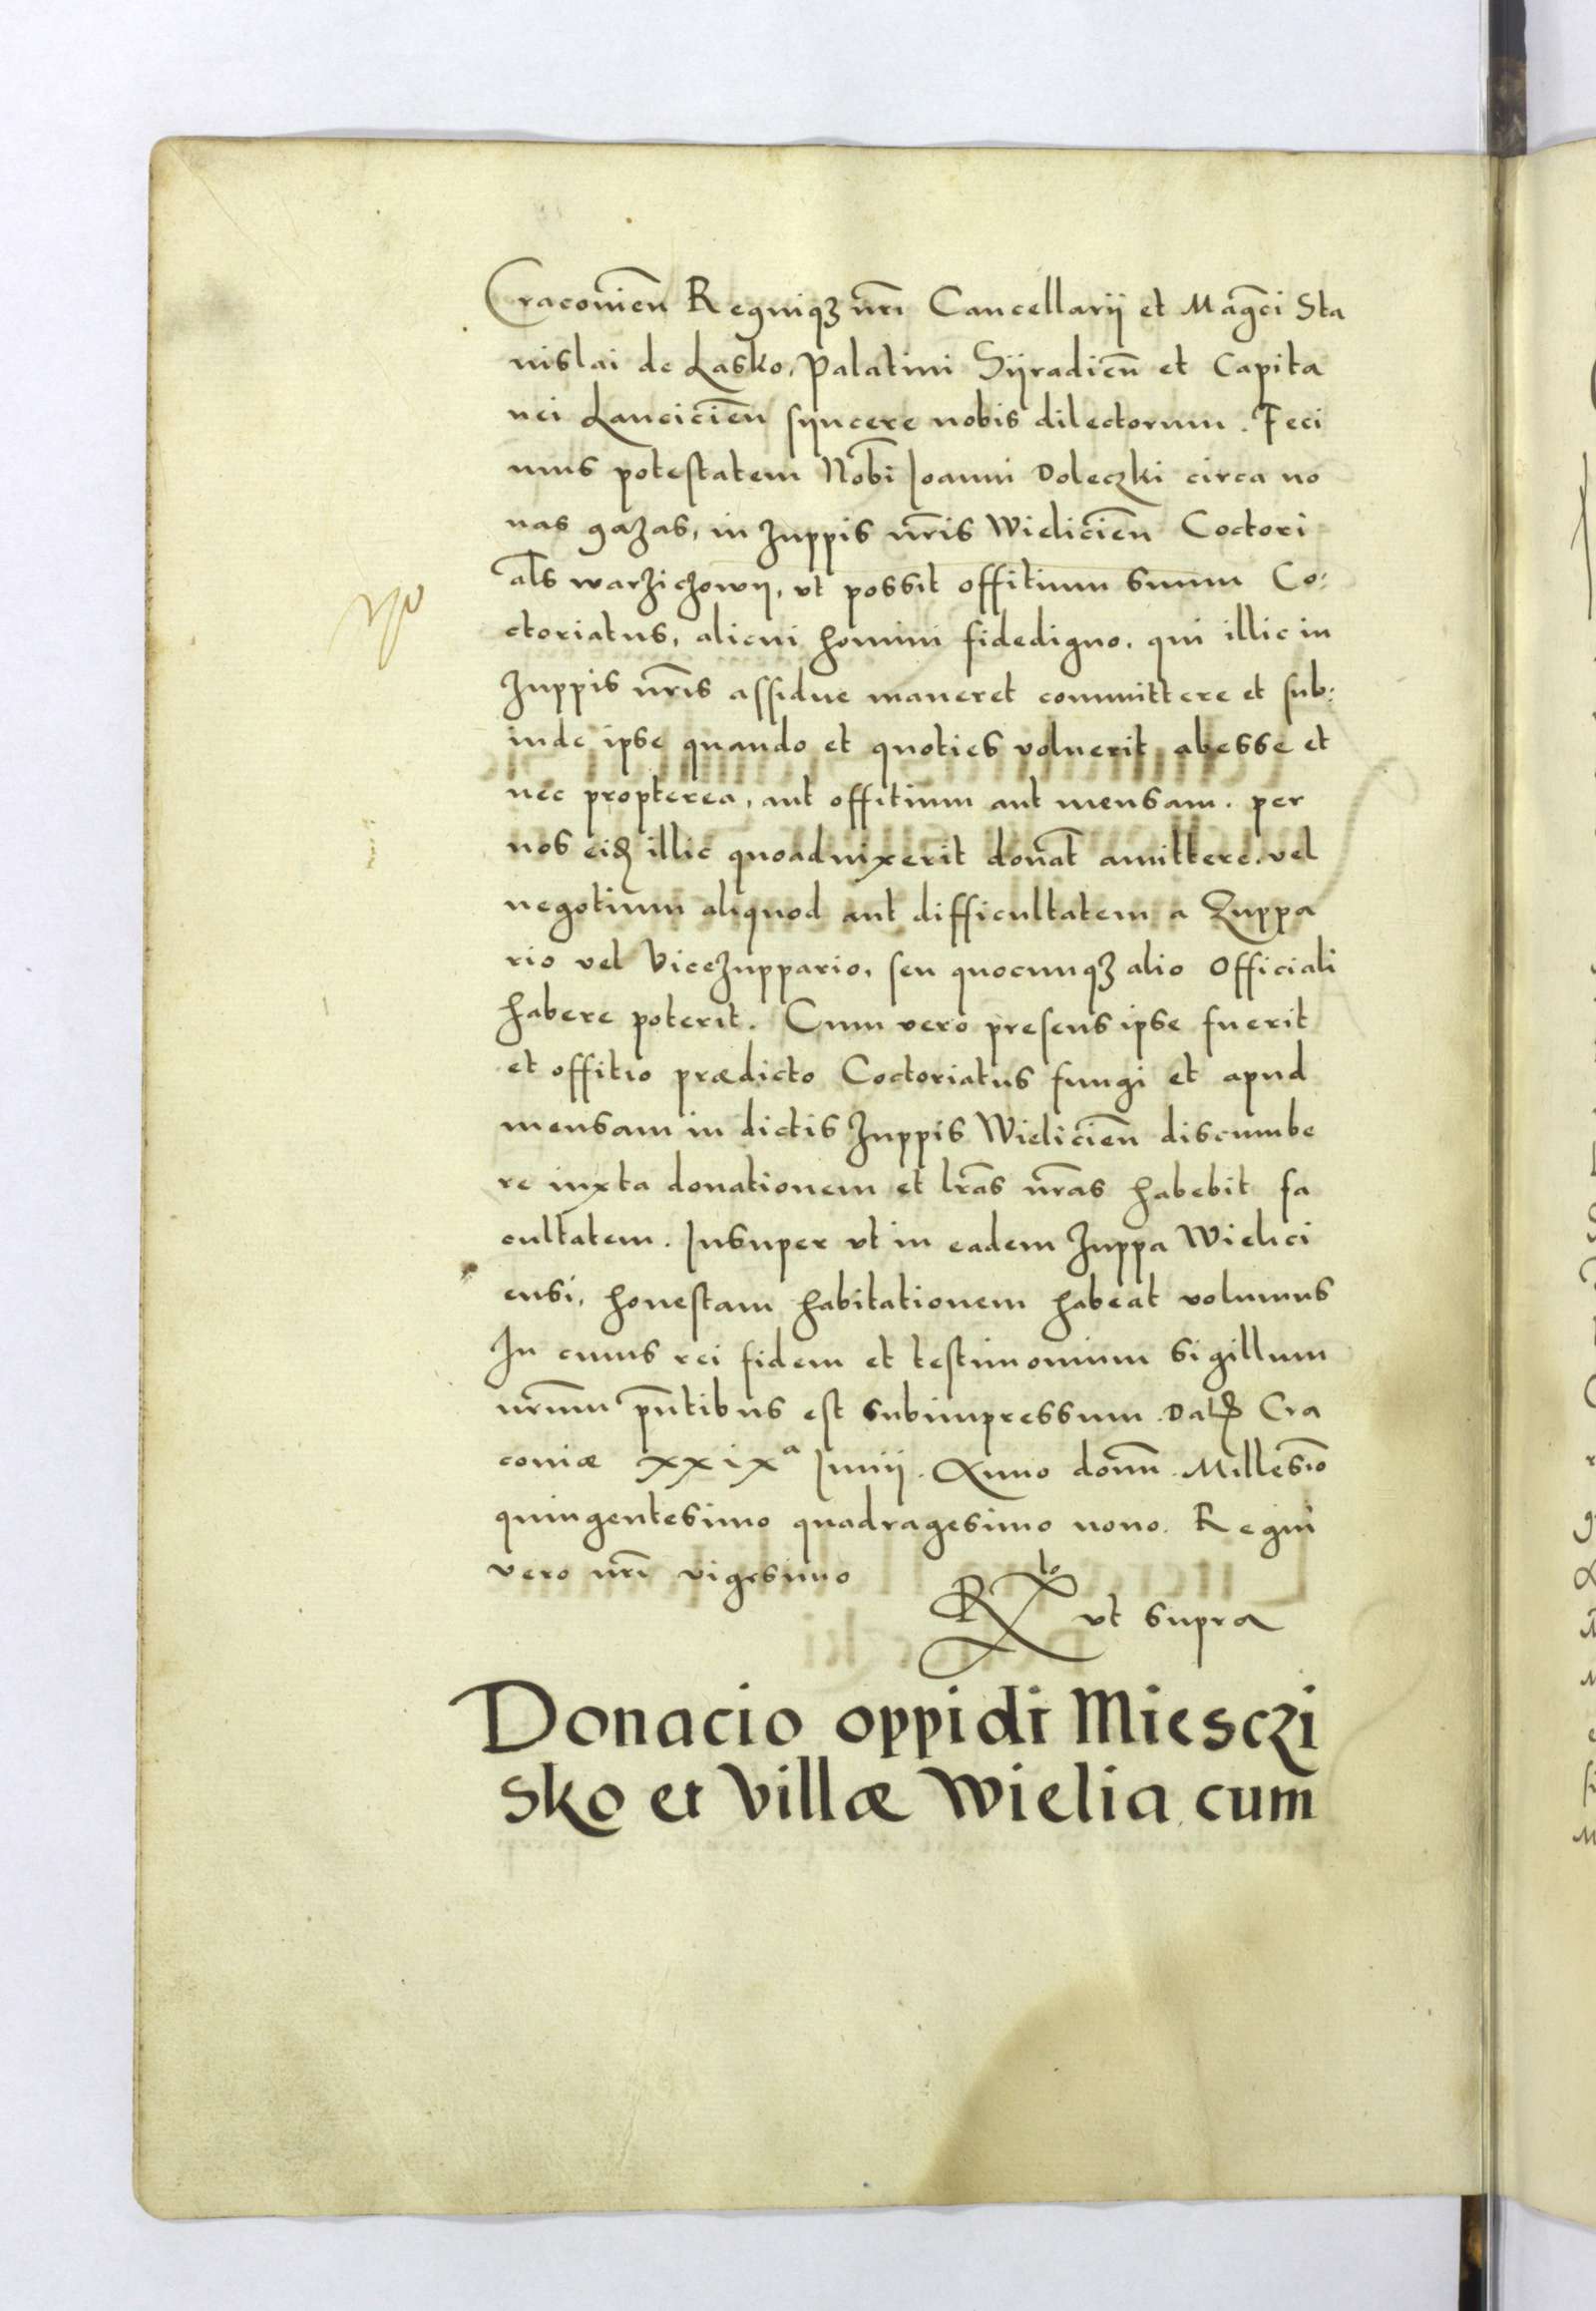 Cracovien̄ Regniqꝫ nr̄i Cancellarij et Mag̃ci Sta
nislai de Lasko, Palatini Sijradien̄ et Capita
nei Lancicien̄ sijncere nobis dilectorum. Feci
mus potestatem Nob̄i Ioanni Doleczki circa no
nas gazas, in zuppis nr̄is Wielicien̄ Coctori
al̄s warziczowij, vt possit offitium suum Co:
ctoriatus, alicui homini fidedigno, qui illic in
zuppis nr̄is assidue maneret committere et sub:
inde ipse quando et quoties voluerit abesse et
nec propterea, aut offitium aut mensam. per
nos eid illic quoaduixerit donat̄ amittere. vel
negotium aliquod aut difficultatem a Zuppa
rio vel Vicezuppario, seu quocunqꝫ alio Officiali
habere poterit. Cum vero presens ipse fuerit
et offitio prædicto Coctoriatus fungi et apud
mensam in dictis zuppis Wielicien̄ discumbe
re iuxta donationem et lr̄as nr̄as habebit fa
cultatem. Insuper vt in eadem zuppa Wielici
ensi, honestam habitationem habeat volumus
In cuius rei fidem et testimonium sigillum
nr̄um pn̄tibus est subimpressum. Dat Cra
coviæ xxixᵃ Iunij. Anno domn̄. Millesīo
quingentesimo quadragesimo nono. Regni
vero nr̄i vigesimo
R̃to vt supra
Donacio oppidi Miesczi
sko et Villæ Wielia cum